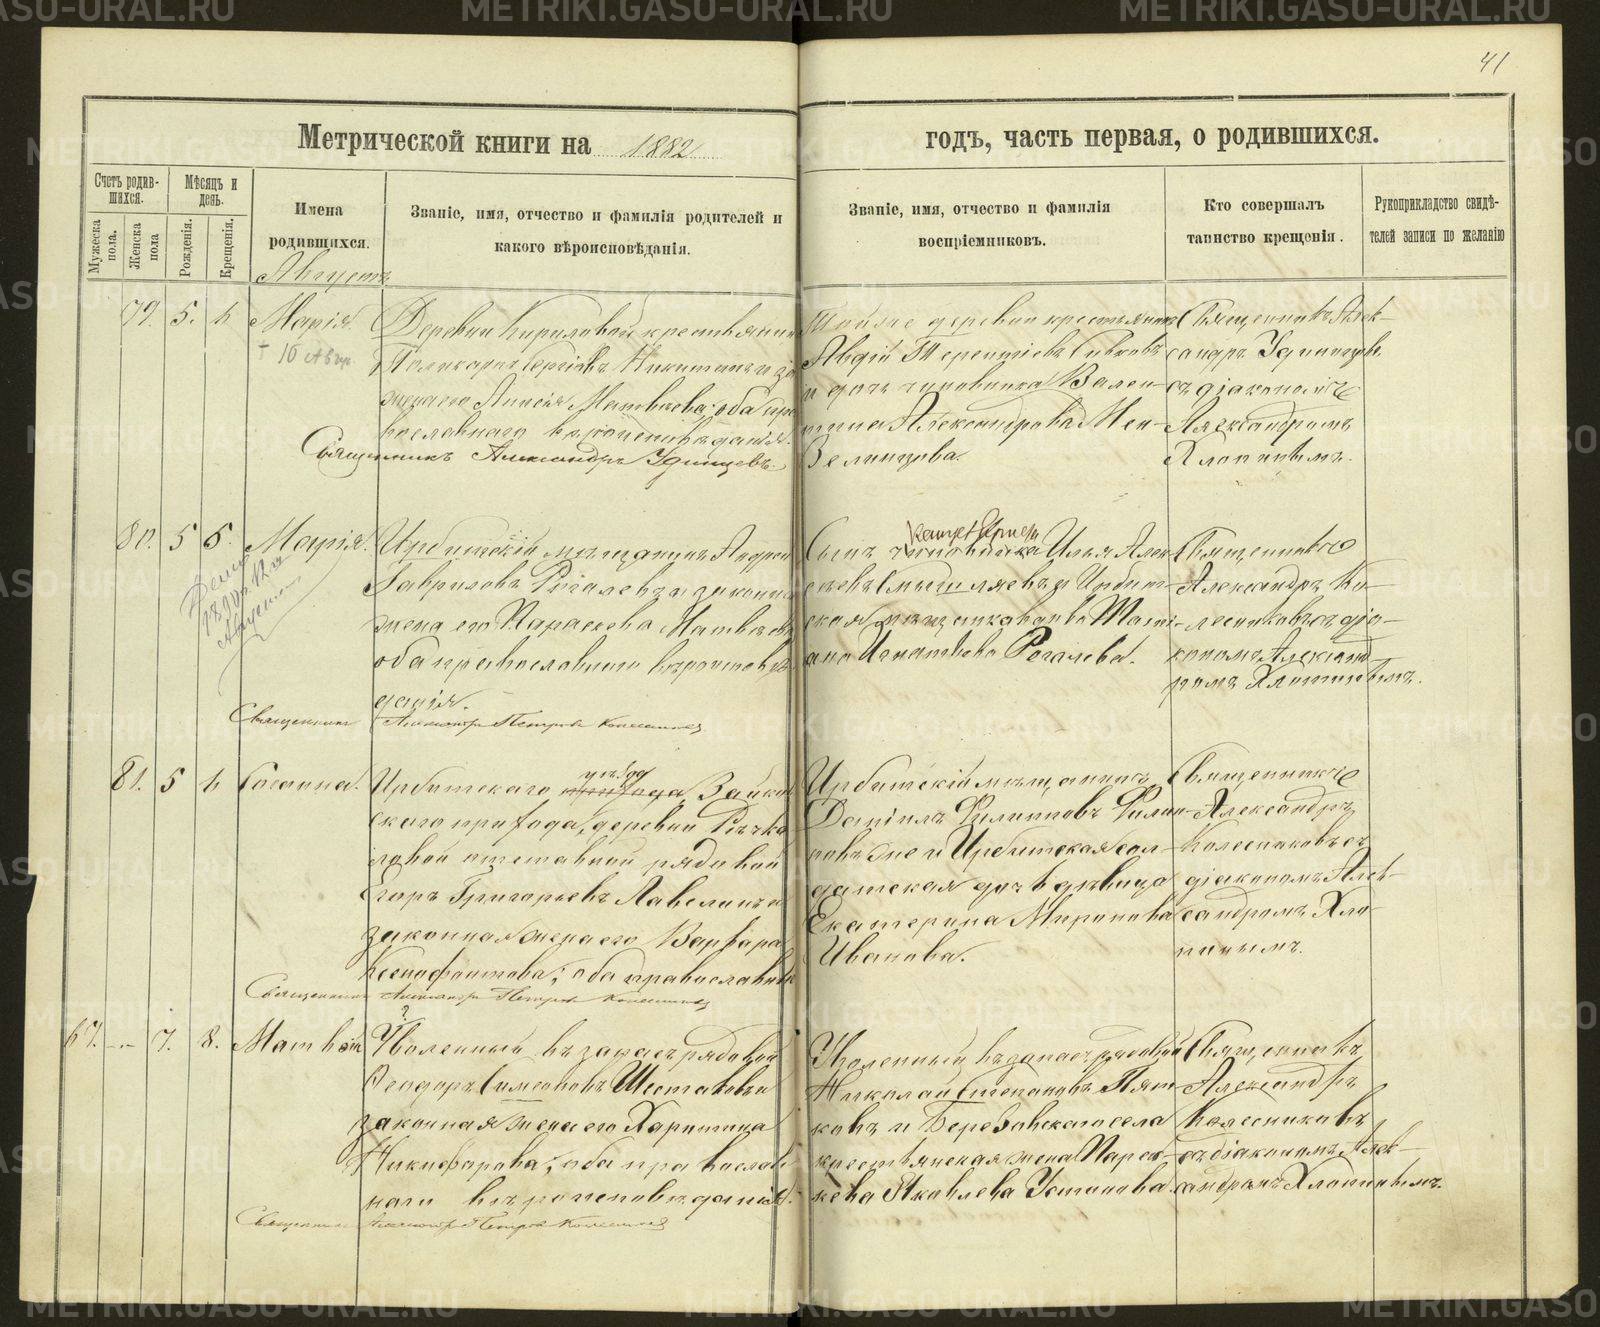 41
Метрической книги на 1882 годъ, часть первая, о родившихся.
Счетъ родив-
шихся.
Мужеска пола.
Женска пола
Мѣсяцъ и день.
Рожденія.
Крещенія.
Имена
родившихся.
Званіе, имя, отчество и фамилія родителей и
какого вѣроисповѣданія.
Званіе, имя, отчество и фамилія
воспріемниковъ.
Кто совершалъ
таинство крещенія.
Рукоприкладство свидѣ-
телей записи по желанію
Августъ
79. 5. 6
Марія.
† 16 Авгр.
Деревни Кириловой крестьянинъ
Поликарпъ Сергіевъ Никитинъ и за
жена его Анисія Матвѣева; оба пра
вославнаго вѣроисповѣданія.
Священникъ Александръ Удинцевъ.
деревни крестьянинъ
Авдій Терентіевъ
и дочь чиновника Вален-
тина Александрова
Священникъ Алек-
сандръ Удинцевъ
съ діакономъ
Александромъ
Хлопинымъ.
80. 5 5.
Марія.
1890 12
Августа
Ирбитскій мѣщанинъ Андрей
Гавриловъ Рогалевъ и законная
жена его Параскева Матвѣева
оба православнаго вѣроисповѣ
данія.
Священникъ Александръ Петровъ Колесниковъ
Сынъ чиновника Илья Алек
сѣевъ Смышляевъ и Ирбит-
ская мѣщанская Тати-
ана Игнатьева Рогалева.
Священникъ
Александръ Ко-
лесниковъ съ діа-
кономъ Александ
ромъ Хлопинымъ.
81. 5 6
Сосанна.
Ирбитскаго уѣзда Зайков
скаго прихода, деревни Рѣчка
ловой отставной рядовой
Егоръ Григорьевъ Лавелинъ и
законная жена его Варвара
Ксенофонтова; оба православнаго
Священникъ Александръ Петровъ Колесниковъ
Ирбитскій мѣщанинъ
Даніилъ Филипповъ Филип-
повъ же и Ирбитская сол-
датская дочь дѣвица
Екатерина Миронова
Иванова.
Священникъ
Александръ
Колесниковъ съ
діакономъ Алек-
сандромъ Хло-
пинымъ.
67. -..- 7. 8.
Матвѣй
?
Уволенный въ запасъ рядовой
Ѳеодоръ Симеоновъ Шестаковъ и
законная жена его Харитина
Никифорова; оба православ
наго вѣроисповѣданія.
Священникъ Александръ Петровъ Колесниковъ
Уволенный въ запасъ рядовой
Николай Степановъ Пят-
ковъ и Березовскаго села
крестьянская жена Парас-
кева Яковлева Устинова.
Священникъ
Александръ
Колесниковъ
съ діакономъ Алек-
сандромъ Хлопинымъ.
METRIKI.GASO-URAL.RU